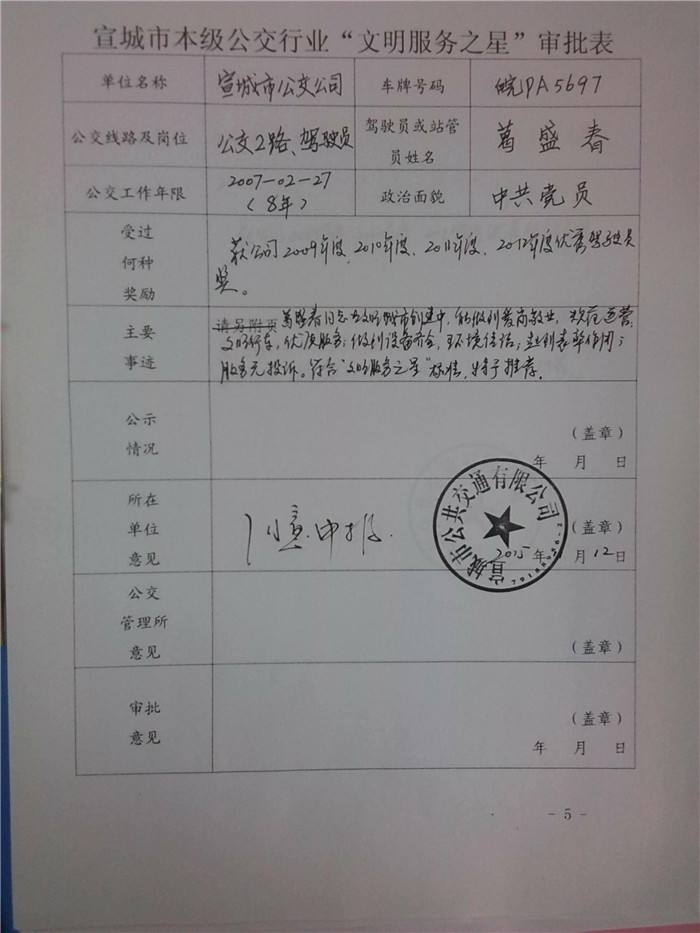 宣城市本级公交行业“文明服务之星”审批表
单位名称 宣城市公交公司 车牌号码 皖PA5697
公交线路及岗位 公交2路、驾驶员 驾驶员或站管员姓名 葛盛春
公交工作年限 2007-02-27 (8年) 政治面貌 中共党员
受过何种奖励
获公司2009年度、2010年度、2011年度、2012年度优秀驾驶员
奖。
主要事迹
请另附页 葛盛春同志在文明城市创建中,能做到爱岗敬业,规范运营,
文明行车,优质服务;做到设备齐全,环境清洁;起到表率作用;
服务无投诉。符合“文明服务之星”标准,特予推荐。
公示情况
(盖章)
年 月 日
所在单位意见
同意申报.
宣城市公共交通有限公司
(盖章)
2015年 月12日
公交管理所意见
(盖章)
审批意见
(盖章)
年 月 日
- 5 -